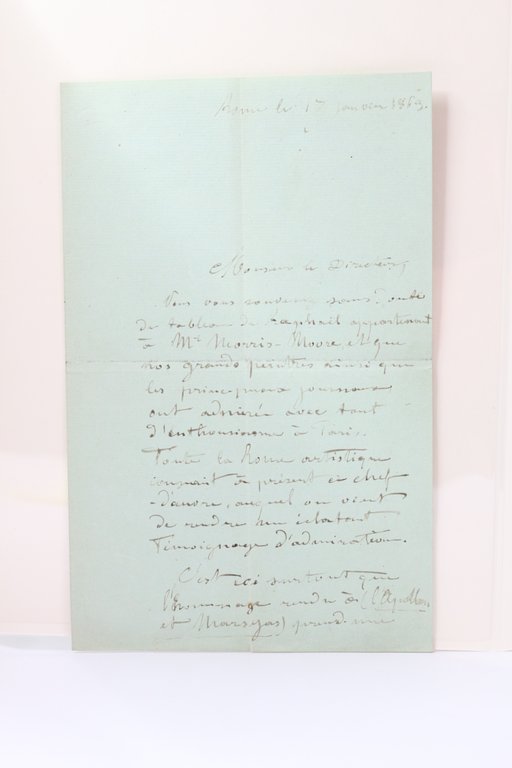 Rome le 17 janvier 1865.
Monsieur le Directeur,
Vous vous souvenez sans doute
du tableau de Raphaël appartenant
à Mr. Morris-Moore, et que
nos grands peintres ainsi que
les principaux journaux
ont admiré avec tant
d'enthousiasme à Paris.
Toute la Rome artistique
connait à présent ce chef
-d'œuvre, auquel on vient
de rendre un éclatant
témoignage d'admiration.
C'est ici surtout que
l'hommage rendu à (l'Apollon
et Marsyas) prend une